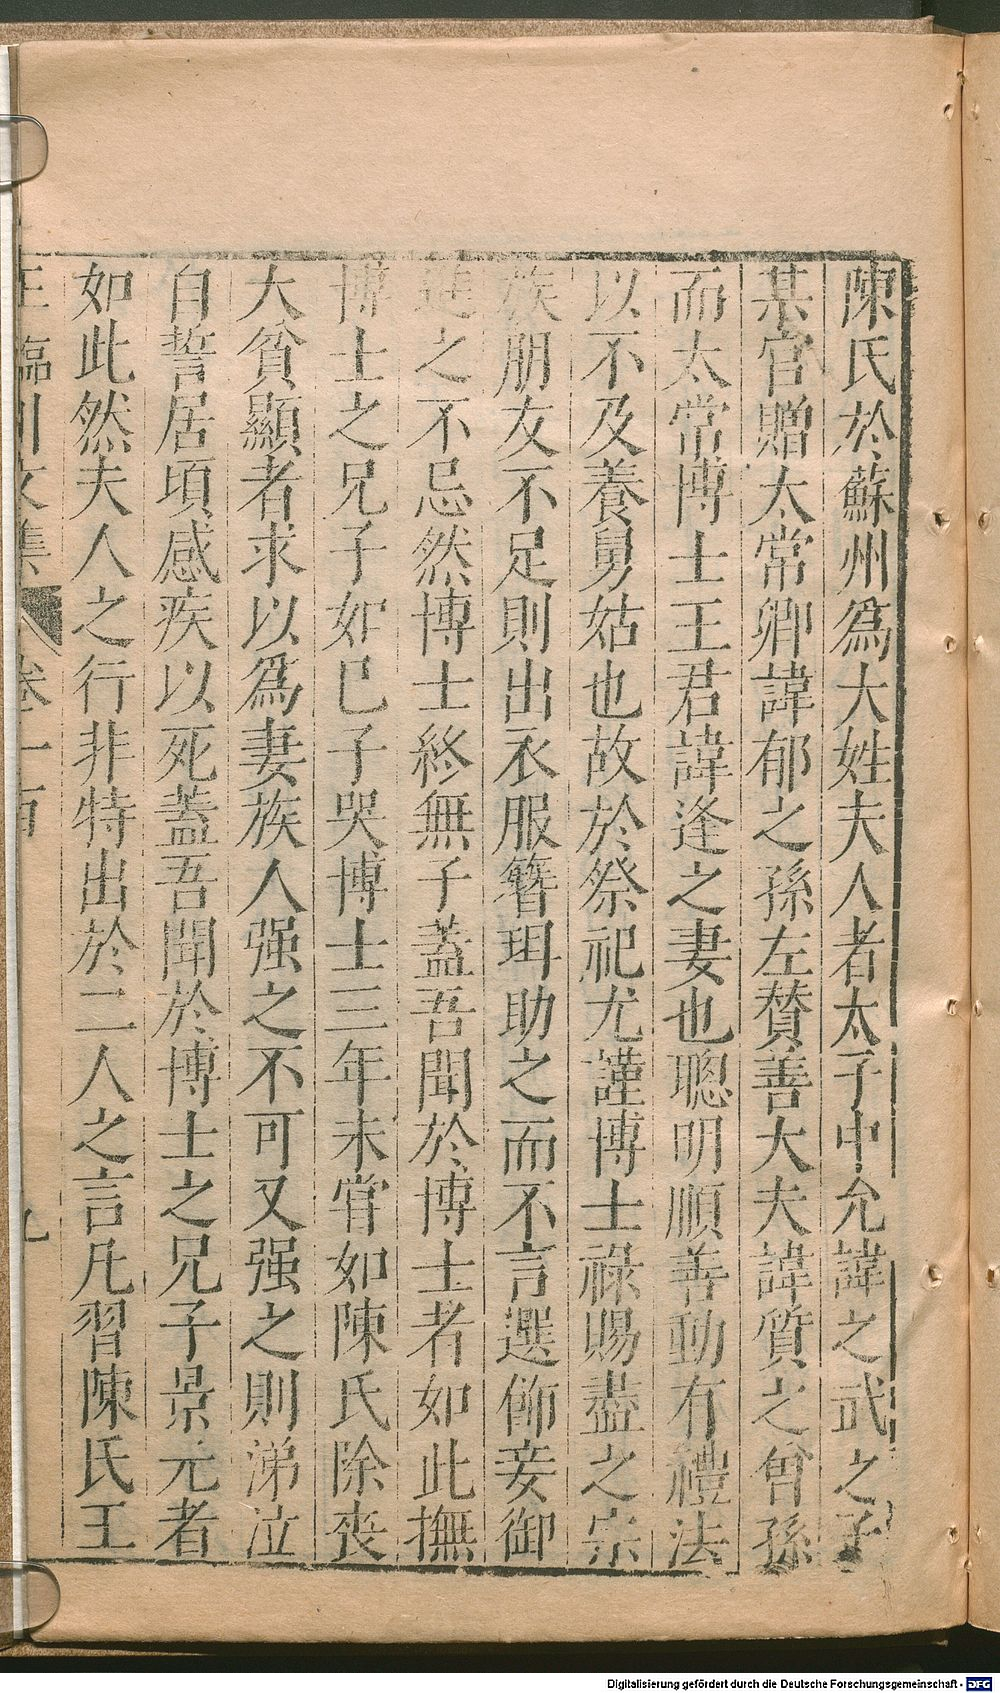 陳氏於蘇州爲大姓夫人者太子中允諱之武之子
某官贈太常卿諱郁之孫左贊善大夫諱質之曾孫
而太常博士王君諱逢之妻也聰明順善動有禮法
以不及養舅姑也故於祭祀尤謹博士祿賜盡之宗
族朋友不足則出衣服簪珥助之而不言選飾妾御
進之不忌然博士終無子蓋吾聞於博士者如此撫
博士之兄子如已子哭博士三年未嘗如陳氏除喪
大貧顯者求以爲妻族人强之不可又强之則涕泣
自誓居頃感疾以死蓋吾聞於博士之兄子景元者
如此然夫人之行非特出於二人之言凡習陳氏王
王臨川文集 卷一百 九
Digitalisierung gefördert durch die Deutsche Forschungsgemeinschaft - DFG